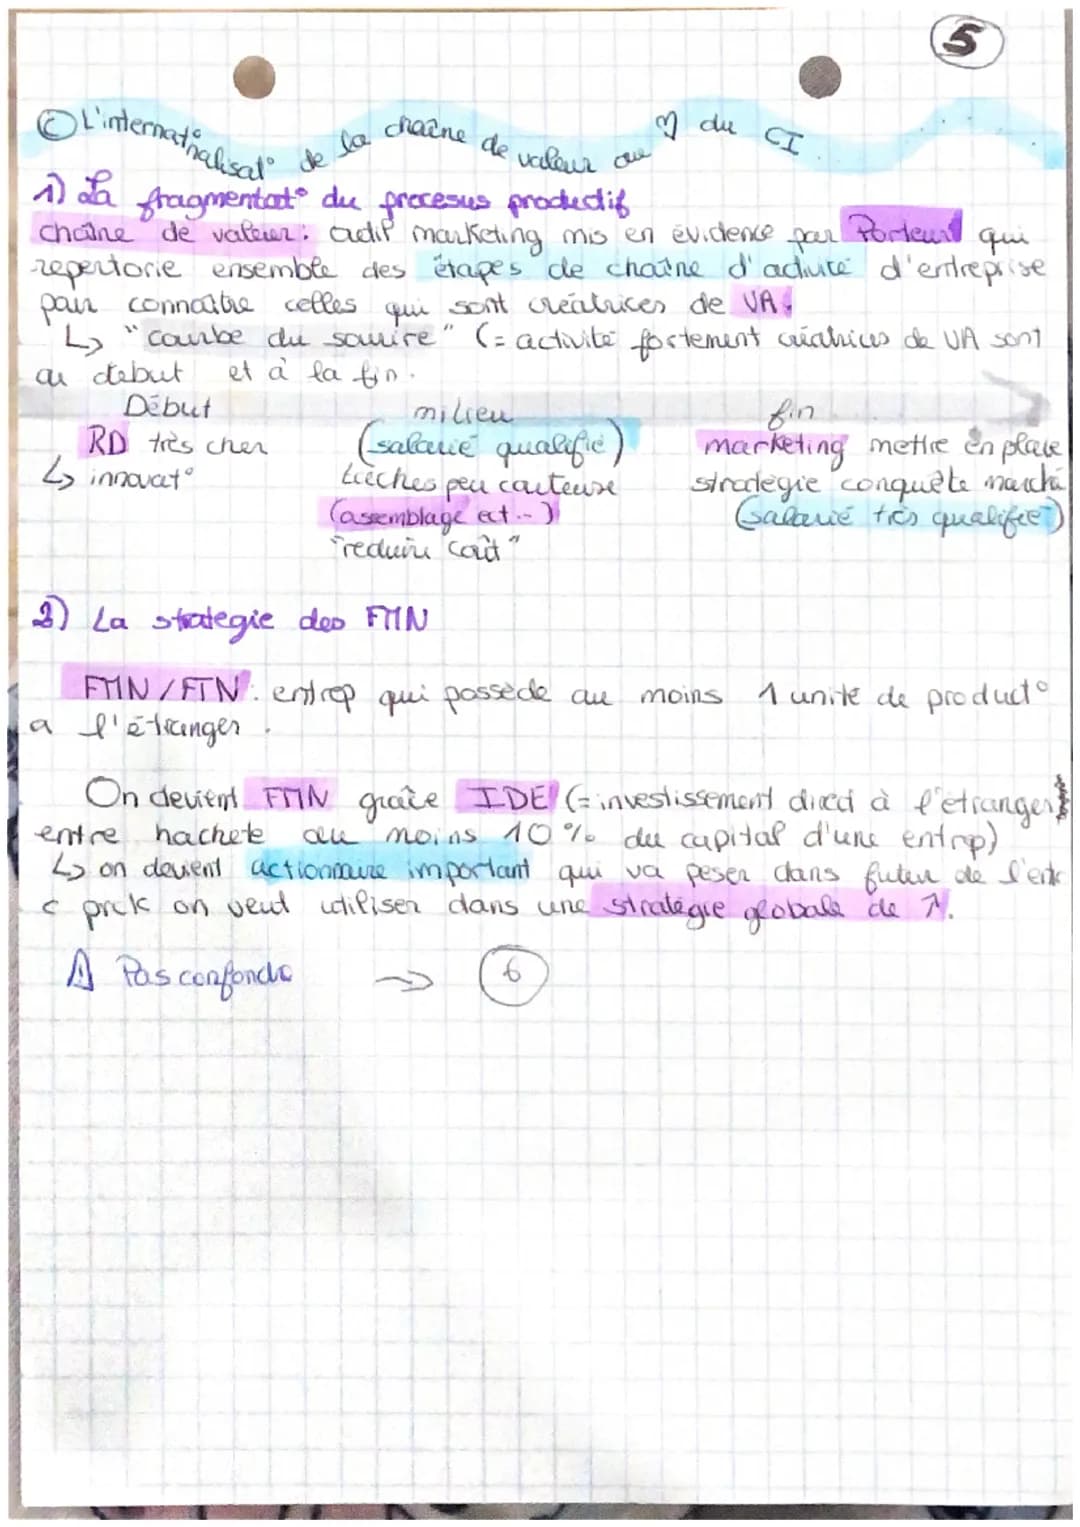 5
C L'internat°nalisat° de la chaîne de valeur au ♡ du CI
1) La fragmentat° du procesus productif
chaîne de valeur : outil marketing mis en évidence par Porteur qui
repertorie ensemble des étapes de chaîne d'activité d'entreprise
pour connaître celles qui sont créatrices de VA.
↳ "courbe du sourire" (= activité fortement créatrices de VA sont
au debut et à la fin.
Début milieu fin
RD très cher (salarié qualifié) marketing mettre en place
↳ innovat° tâches peu couteuse stratégie conquête marché
(assemblage ect...) (salarié très qualifié)
"reduire coût"
2) La strategie des FMN
FMN/FTN : entrep qui possède au moins 1 unité de product°
a l'étranger.
On devient FMN grâce IDE (= investissement direct à l'etranger
entre hachete au moins 10% du capital d'une entrep)
↳ on devient actionnaire important qui va peser dans futur de l'entr
c prck on veut utiliser dans une stratégie globale de ↗.
⚠ Pas confondre → 6